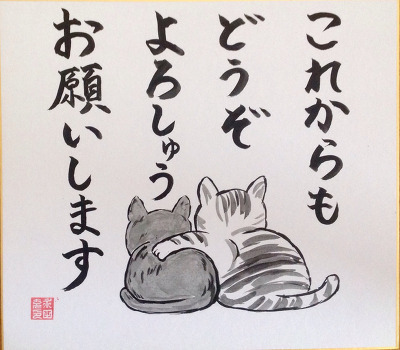 これからも
どうぞ
よろしゅう
お願いします